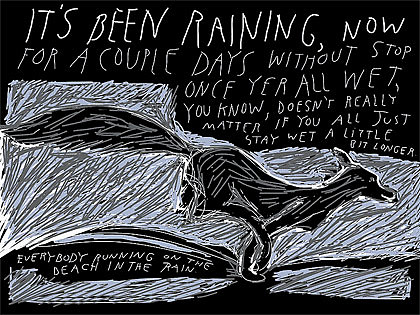 IT'S BEEN RAINING, NOW
FOR A COUPLE DAYS WITHOUT STOP
ONCE YER ALL WET,
YOU KNOW, DOESN'T REALLY
MATTER, IF YOU ALL JUST
STAY WET A LITTLE
BIT LONGER
EVERYBODY RUNNING ON THE
BEACH IN THE RAIN